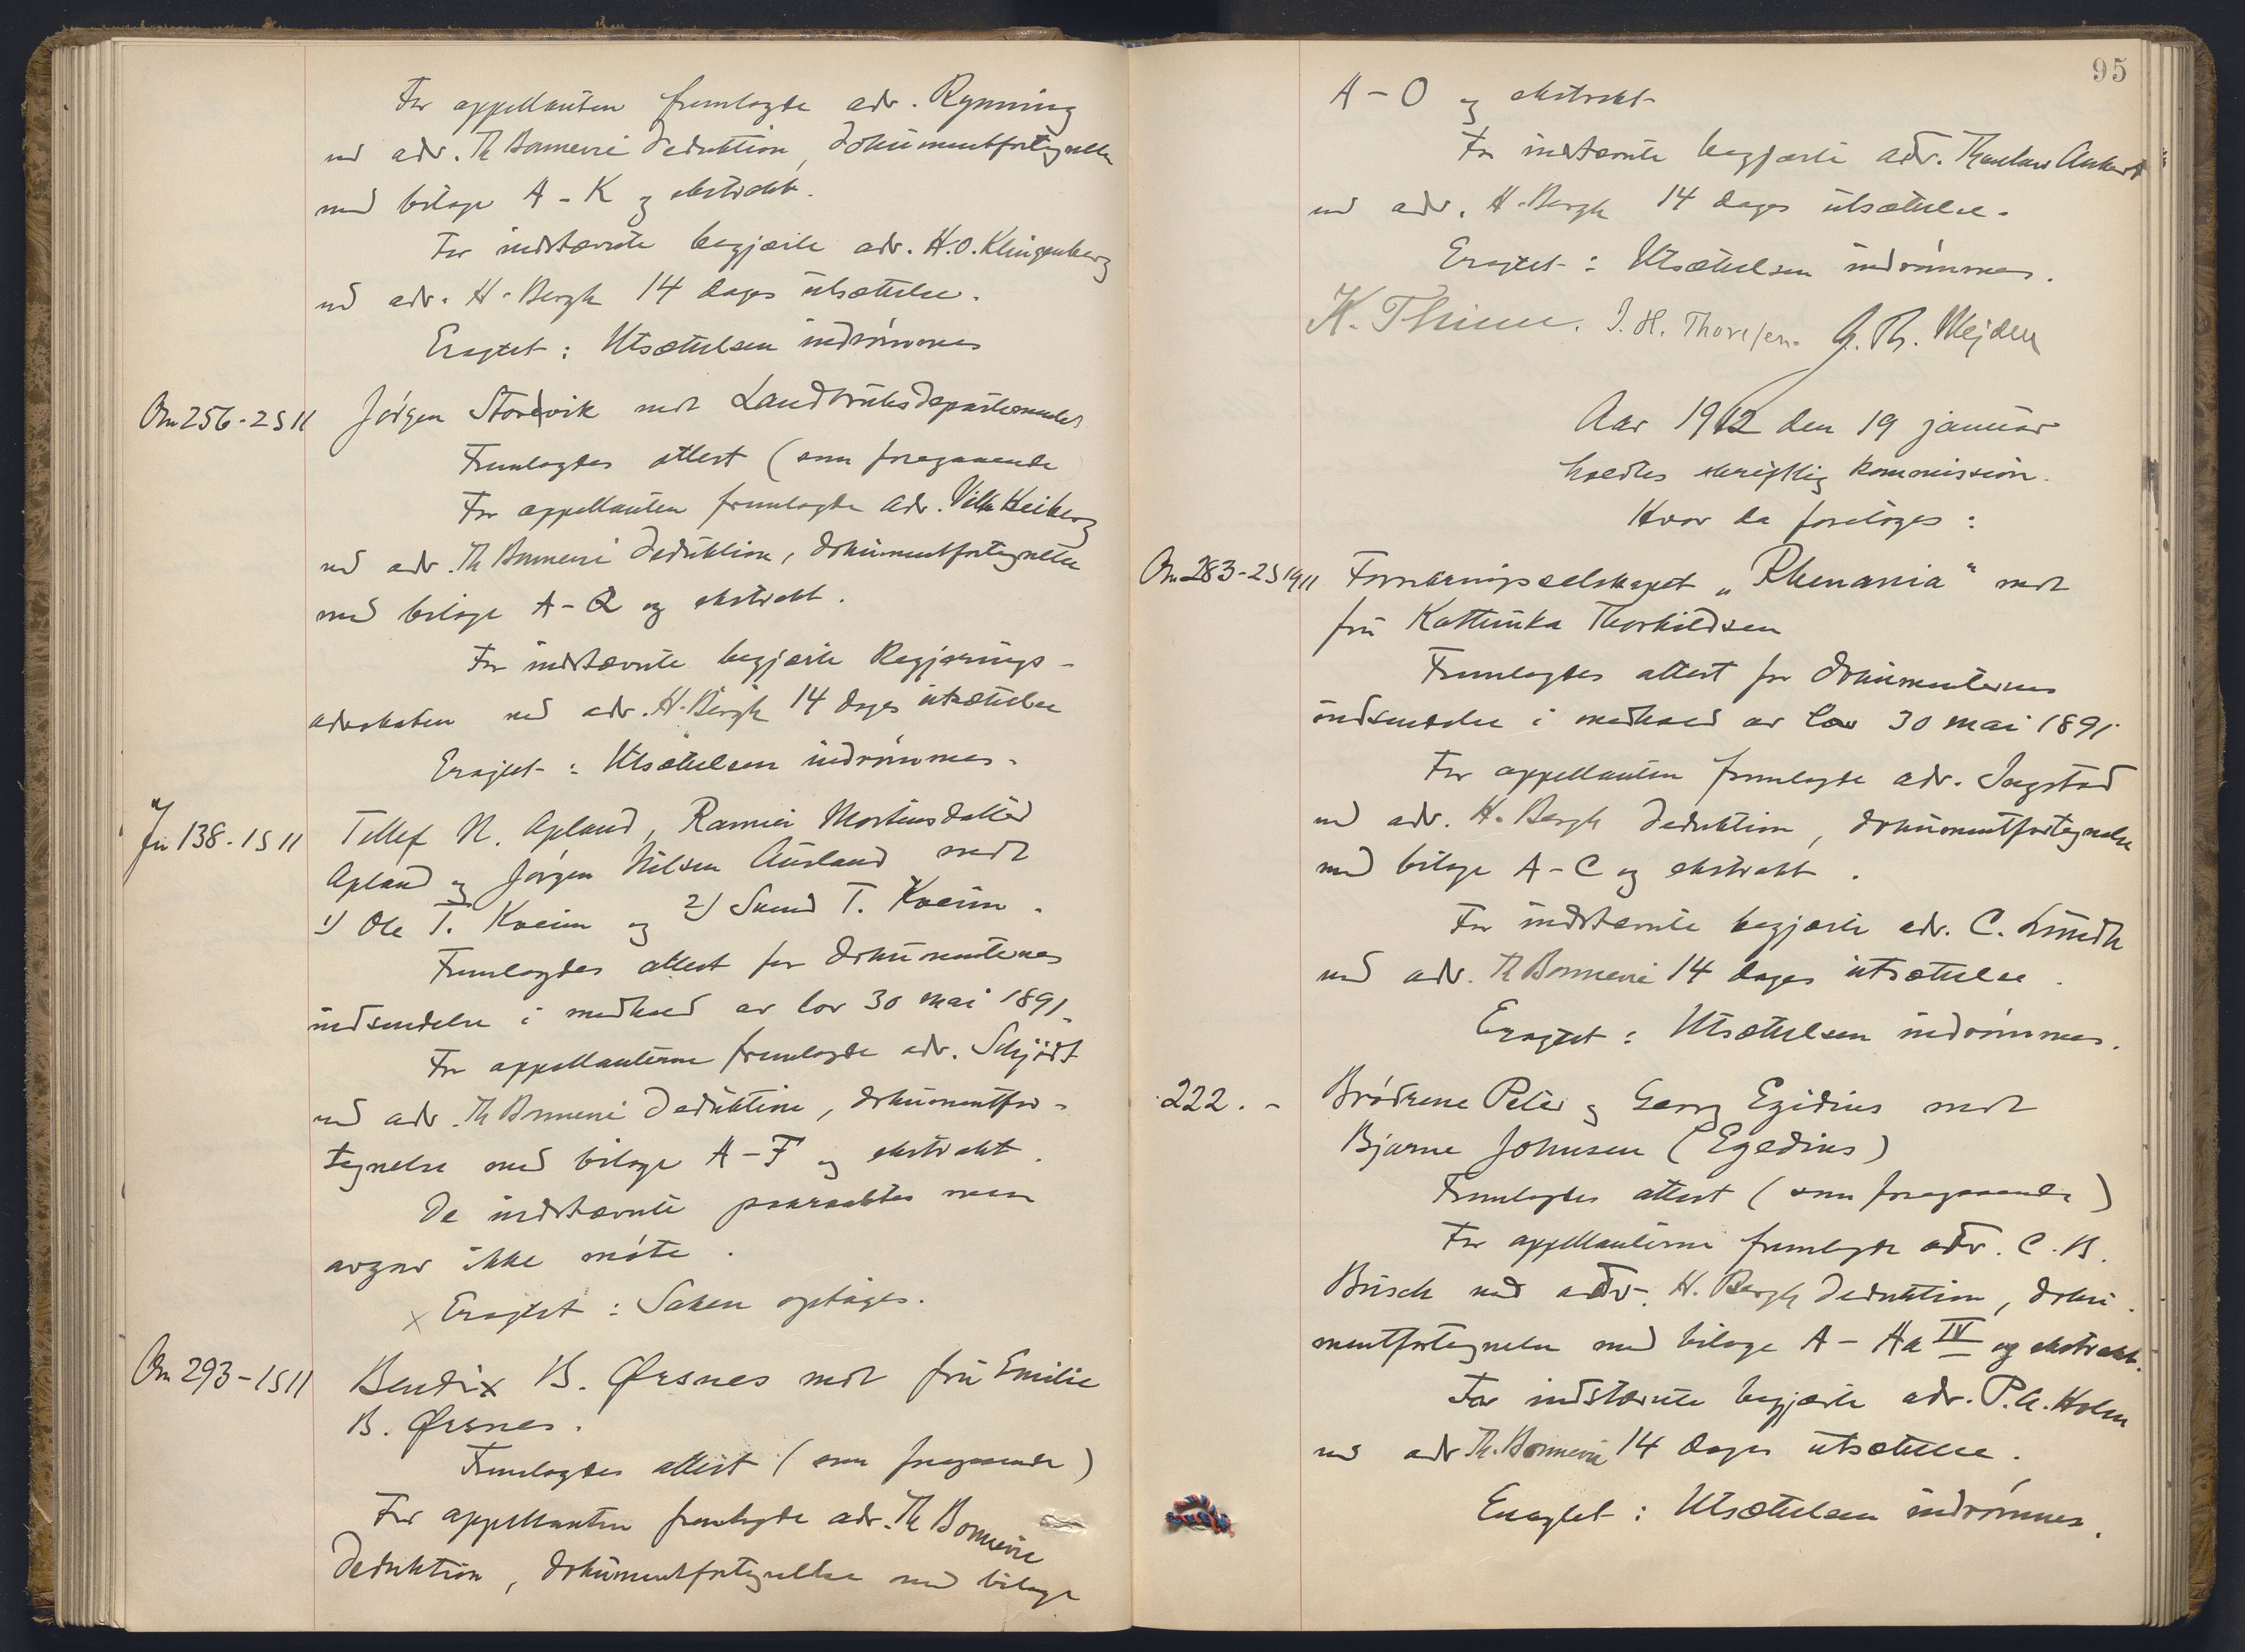 For appellanten fremlagde adv. Rynning
ved adv. Th Bonnevie deduktion, dokumentfortegnelse
med bilage A - K og ekstrakt.
For indstævnte begjærte adv. H.O. Klingenberg
ved adv. H. Bergh 14 dages utsættelse.
Eragtet: Utsættelsen indrømmes
On 256-2S 11 Jørgen Storvik mot Landbruksdepartementet
Fremlagdes attest (som foregaaende
For appellanten fremlagde adv. Vilh Heiberg
ved adv. Th Bonnevie deduktion, dokumentfortegnelse
med bilage A-Q og ekstrakt.
For indstævnte begjærte Regjerings-
advokaten ved adv. H. Bergh 14 dages utsættelse
Eragtet: Utsættelsen indrømmes.
138-1S 11 Tellef N. Apland, Martinsdatter
Apland og Jørgen Nilsen Ausland mot
1) Ole T. Kveim og 2) Svend T. Kveim.
Fremlagdes attest for dokumenternes
indsendelse i medhold av lov 30 mai 1891.
For appellanterne fremlagde adv. Schjødt
ved adv. Th Bonnevie deduktion, dokumentfor-
tegnelse med bilage A-F og ekstrakt.
De indstævnte paaraabtes men
avgav ikke møte.
x Eragtet: Saken optages.
On 293-1S 11 Bendix B. Ørsnes mot fru Emilie
B. Ørsnes.
Fremlagdes attest (som foregaaende)
For appellanten fremlagde adv. Th Bonnevie
deduktion, dokumentfortegnelse med bilage
95
A-O og ekstrakt
For indstævnte begjærte adv. Ankert
ved adv. H. Bergh 14 dages utsættelse.
Eragtet: Utsættelsen indrømmes.
K. Thinn. J. H. Thoresen. G. Th. Mejdell
Aar 1912 den 19 januar
holdtes skriftlig kommission.
Hvor da foretoges:
On 283-2S 1911 Forsikringsselskapet „Rhenania" mot
fru Kattinka Thorkildsen
Fremlagdes attest for dokumenternes
indsendelse i medhold av lov 30 mai 1891.
For appellanten fremlagde adv. Ingstad
ved adv. H. Bergh deduktion, dokumentfortegnelse
med bilage A-C og ekstrakt.
For indstævnte begjærte adv. C. Lundh
ved adv. Th Bonnevie 14 dages utsættelse.
Eragtet: Utsættelsen indrømmes.
222. - Brødrene Peter og Georg Egidius mot
Bjarne Johnsen (Egedius)
Fremlagdes attest (som foregaaende)
For appellanterne fremlagde adv. C. B.
Busch ved adv. H. Bergh deduktion, doku-
mentfortegnelse med bilage A - Aa IV og ekstrakt.
For indstævnte begjærte adv. P.A. Holm
ved adv Th. Bonnevie 14 dages utsættelse.
Eragtet: Utsættelsen indrømmes.